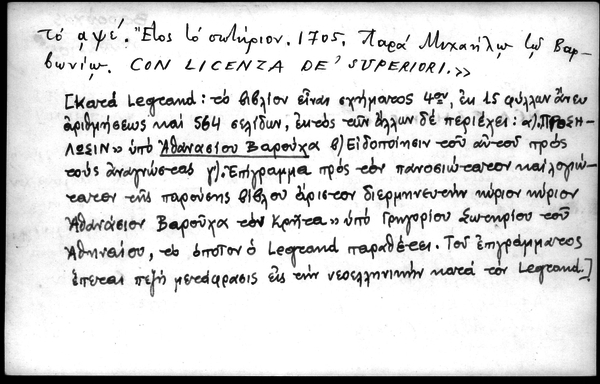 τό αψέ. Ἔτος τό σωτήριον. 1705. Παρά Μιχαήλῳ τῷ Βαρ-
βωνίῳ. CON LICENZA DE' SUPERIORI.»
[Κατά Legrand: τό βιβλίον εἶναι σχήματος 4ον, ἐκ 15 φύλλων ἄνευ
ἀριθμήσεως καί 564 σελίδων, ἐκτός τῶν ἄλλων δέ περιέχει: α) «ΠΡΟΣΗ-
ΛΩΣΙΝ» ὑπό Ἀθανασίου Βαρούχα β) Εἰδοποίησιν τοῦ αὐτοῦ πρός
τούς ἀναγνώστας γ) «Ἐπίγραμμα πρός τόν πανοσιώτατον καί λογιώ-
τατον τῆς παρούσης βίβλου ἄριστον διερμηνευτήν κύριον κύριον
Ἀθανάσιον Βαροῦχα τόν Κρῆτα» ὑπό Γρηγορίου Σωτηρίου τοῦ
Ἀθηναίου, τό ὁποῖον ὁ Legrand παραθέτει. Τοῦ ἐπιγράμματος
ἕπεται πεζή μετάφρασις εἰς τήν νεοελληνικήν κατά τόν Legrand.]